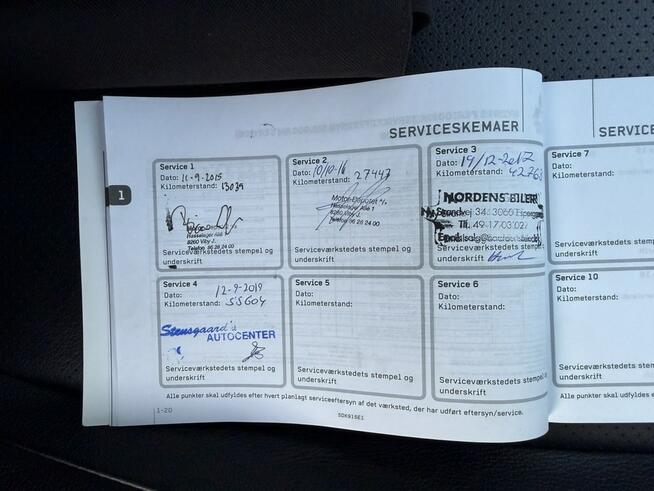 SERVICESKEMAER
Service 1
Dato: 11-9-2015
Kilometerstand: 13039
8260 Viby J.
Telefon 86 28 24 00
Serviceværkstedets stempel og
underskrift
Service 2
Dato: 10/10-16
Kilometerstand: 27443
Motor Depotet A/S
Hasselager Allé 1
8260 Viby J.
Telefon 86 28 24 00
Serviceværkstedets stempel og
underskrift
Service 3
Dato: 19/12-2017
Kilometerstand: 42268
NORDENS BILER
Strandvej 34. 3060
Tlf. 49-17-03-02
Serviceværkstedets stempel
underskrift
Service 4
Dato: 12-9-2019
Kilometerstand: 55604
Stensgaard's
AUTOCENTER
Serviceværkstedets stempel og
underskrift
Service 5
Dato:
Kilometerstand:
Serviceværkstedets stempel og
underskrift
Service 6
Dato:
Kilometerstand:
Serviceværkstedets stempel
underskrift
Alle punkter skal udfyldes efter hvert planlagt serviceeftersyn af det værksted, der har udført eftersyn/service.
1-20
SDK915E1
1
SERVICE
Service 7
Dato:
Kilometerstand:
Serviceværkstedets
underskrift
Service 10
Dato:
Kilometerstand:
Serviceværkstedets
underskrift